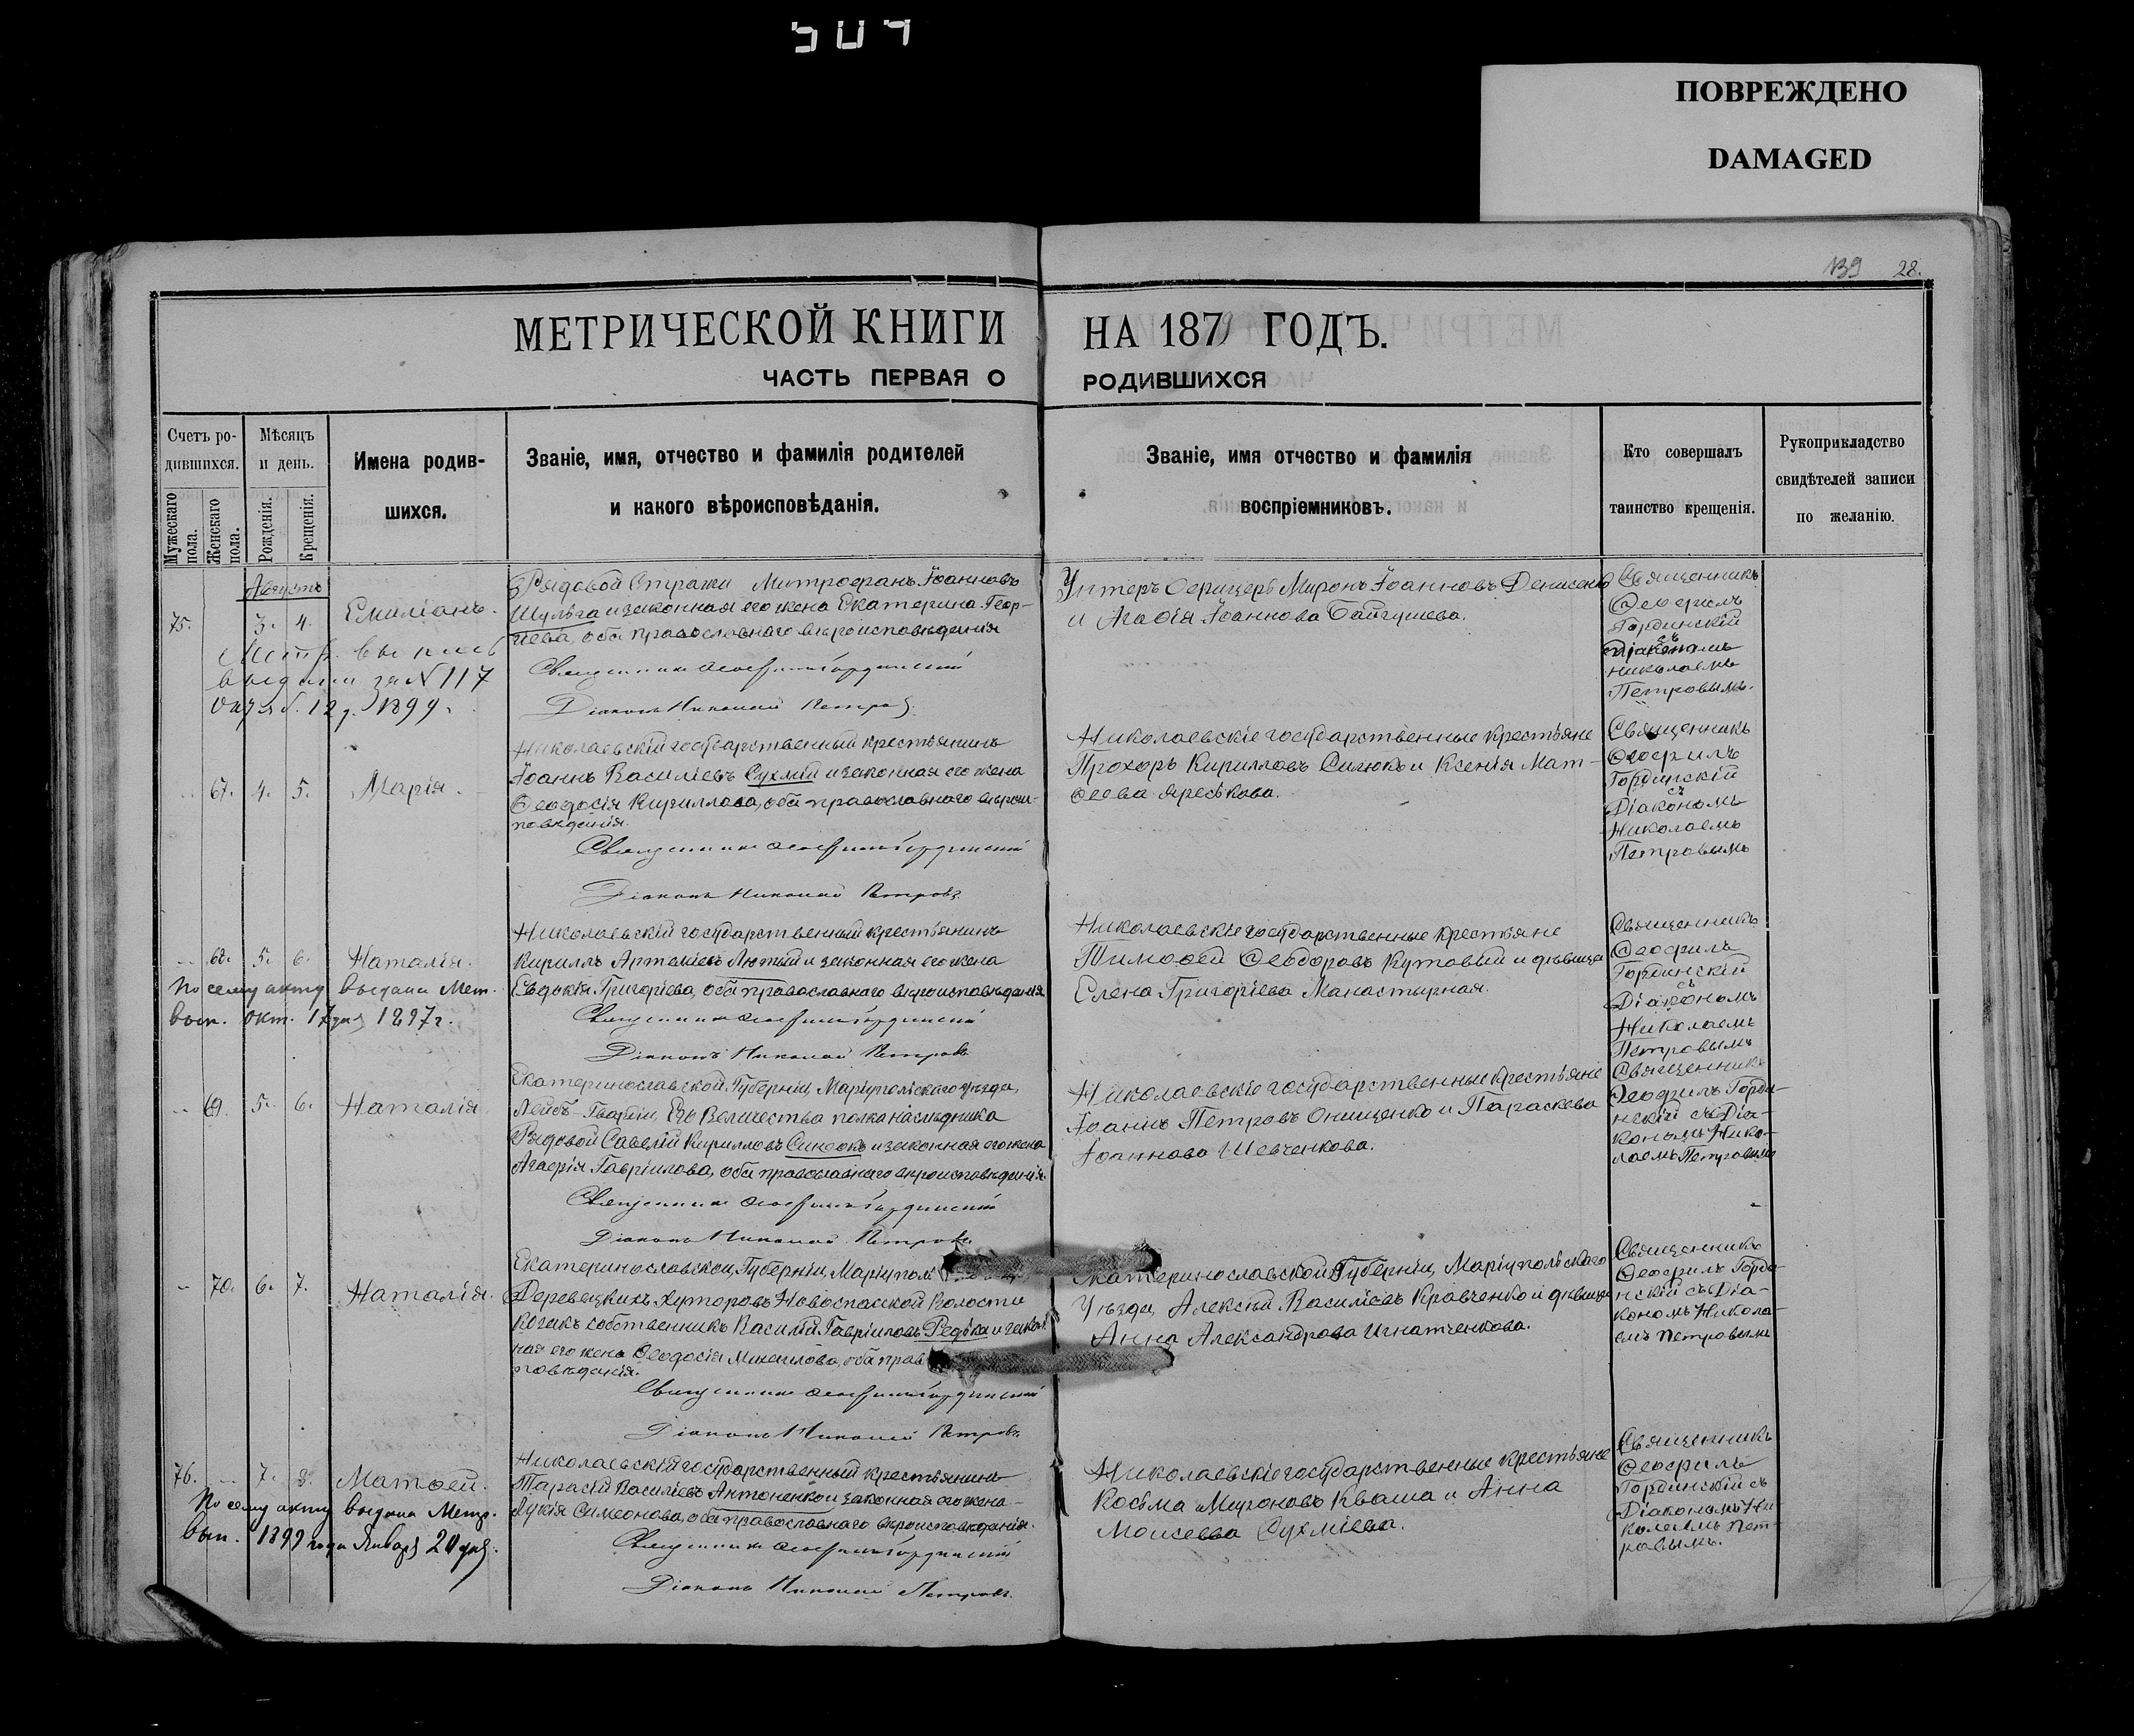 504
ПОВРЕЖДЕНО
DAMAGED
139 28.
МЕТРИЧЕСКОЙ КНИГИ НА 1879 ГОДЪ.
ЧАСТЬ ПЕРВАЯ О РОДИВШИХСЯ
Счетъ ро-
дившихся.
Мужескаго пола.
Женскаго пола.
Мѣсяцъ
и день.
Рожденія.
Крещенія.
Имена родив-
шихся.
Званіе, имя, отчество и фамилія родителей
и какого вѣроисповѣданія.
Званіе, имя отчество и фамилія
воспріемниковъ.
Кто совершалъ
таинство крещенія.
Рукоприкладство
свидѣтелей записи
по желанію.
Августъ
75. 3. 4. Емиліанъ.
Метр. выпись
выдана за № 117
12 1899
Рядовой Стражи Митрофанъ Іоанновъ
Шульга и законная его жена Екатерина Геор-
гіева, оба православнаго вѣроисповѣданія
Священникъ Ѳеофилъ Гординскій
Діаконъ Николай Петровъ
Унтеръ Офицеръ Миронъ Іоанновъ Денисенко
и Агафія Іоаннова
Священникъ
Ѳеофилъ
Гординскій
съ
Діакономъ
Николаемъ
Петровымъ.
67. 4. 5. Марія.
Николаевскій государственный крестьянинъ
Іоаннъ Василіевъ Сухмій и законная его жена
Ѳеодосія Кириллова, оба православнаго вѣроис-
повѣданія.
Священникъ Ѳеофилъ Гординскій
Діаконъ Николай Петровъ.
Николаевскіе государственные крестьяне
Прохоръ Кирилловъ Силюкъ и Ксенія Мат-
ѳеева Яреськова.
Священникъ
Ѳеофилъ
Гординскій
съ
Діакономъ
Николаемъ
Петровымъ
68. 5. 6. Наталія.
По сему акту выдана Мет.
вып. окт. 17 дня 1897 г.
Николаевскій государственный крестьянинъ
Кириллъ Артеміевъ Лютый и законная его жена
Евдокія Григоріева, оба православнаго вѣроисповѣданія
Священникъ Ѳеофилъ Гординскій
Діаконъ Николай Петровъ
Николаевскіе государственные крестьяне
Тимоѳей Ѳеодоровъ Кутовый и дѣвица
Елена Григоріева Манастырная.
Священникъ
Ѳеофилъ
Гординскій
съ
Діакономъ
Николаемъ
Петровымъ
69. 5. 6. Наталія.
Екатеринославской Губерніи, Маріупольскаго уѣзда,
Лейбъ-Гвардіи, Его Величества полка наслѣдника
Рядовой Савелій Кирилловъ и законная его жена
Агафія Гавріилова, оба православнаго вѣроисповѣданія.
Священникъ Ѳеофилъ Гординскій
Діаконъ Николай Петровъ.
Николаевскіе государственные крестьяне
Іоаннъ Петровъ Онищенко и Параскева
Іоаннова Шевченкова.
Священникъ
Ѳеофилъ Горди-
нскій съ Діа-
кономъ Нико-
лаемъ Петровымъ
70. 6. 7. Наталія.
Екатеринославской Губерніи, Маріупол
Деревецкихъ Хуторовъ Новоспасской Волости
Козакъ собственникъ Василій Гавріиловъ Редька и закон-
ная его жена Ѳеодосія Михаилова, оба прав
повѣданія.
Священникъ Ѳеофилъ Гординскій
Діаконъ Николай Петровъ.
Екатеринославской Губерніи, Маріупольскаго
Уѣзда, Алексѣй Василіевъ Кравченко и дѣвица
Анна Александрова Игнатченкова.
Священникъ
Ѳеофилъ Горди-
нскій съ Діа-
кономъ Никола-
емъ Петровымъ
76. 7. 8. Матѳей.
По сему акту выдана Метр.
вып. 1899 года Января 20 дня.
Николаевскій государственный крестьянинъ
Тарасій Василіевъ Антоненко и законная его жена
Лукія Симеонова, оба православнаго вѣроисповѣданія.
Священникъ Ѳеофилъ Гординскій
Діаконъ Николай Петровъ.
Николаевскіе государственные крестьяне
Косьма Мироновъ Кваша и Анна
Моисеева Сухміева.
Священникъ
Ѳеофилъ
Гординскій съ
Діакономъ Ни
колаемъ Пет-
ровымъ.